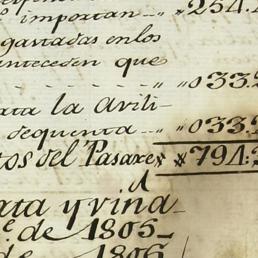 importan--- " 254.2
gastadas en los
anteceden que
- - - - - " 033.2
ata la Avili-
sequenta --- " 033.2
tos del Pasaxe, " 794:2
A
ata y vina-
e de 1805-
de 1806